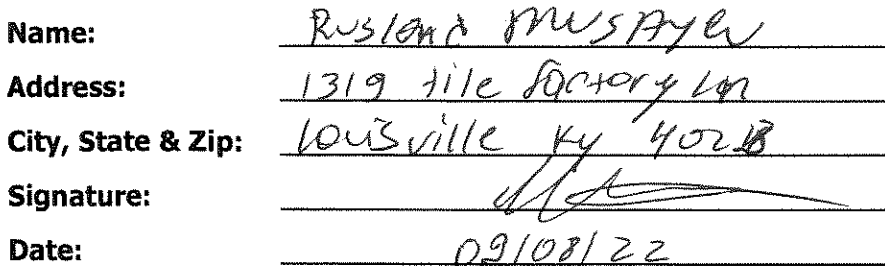 Name: Rusland Musayev
Address: 1319 tile factory Ln
City, State & Zip: Louisville Ky 40213
Signature:
Date: 09/08/22